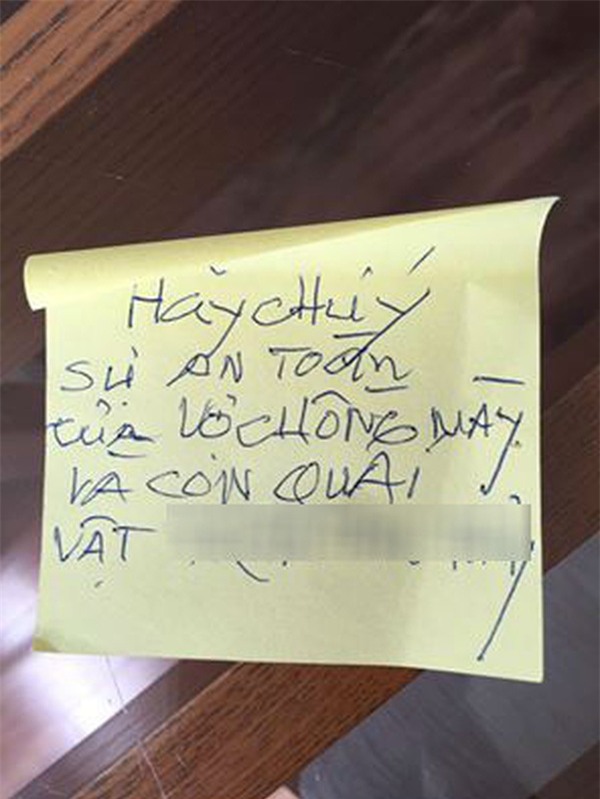 HÃY CHÚ Ý
SỰ AN TOÀN
CỦA VỢ CHỒNG MÀY
VÀ CON QUÁI
VẬT